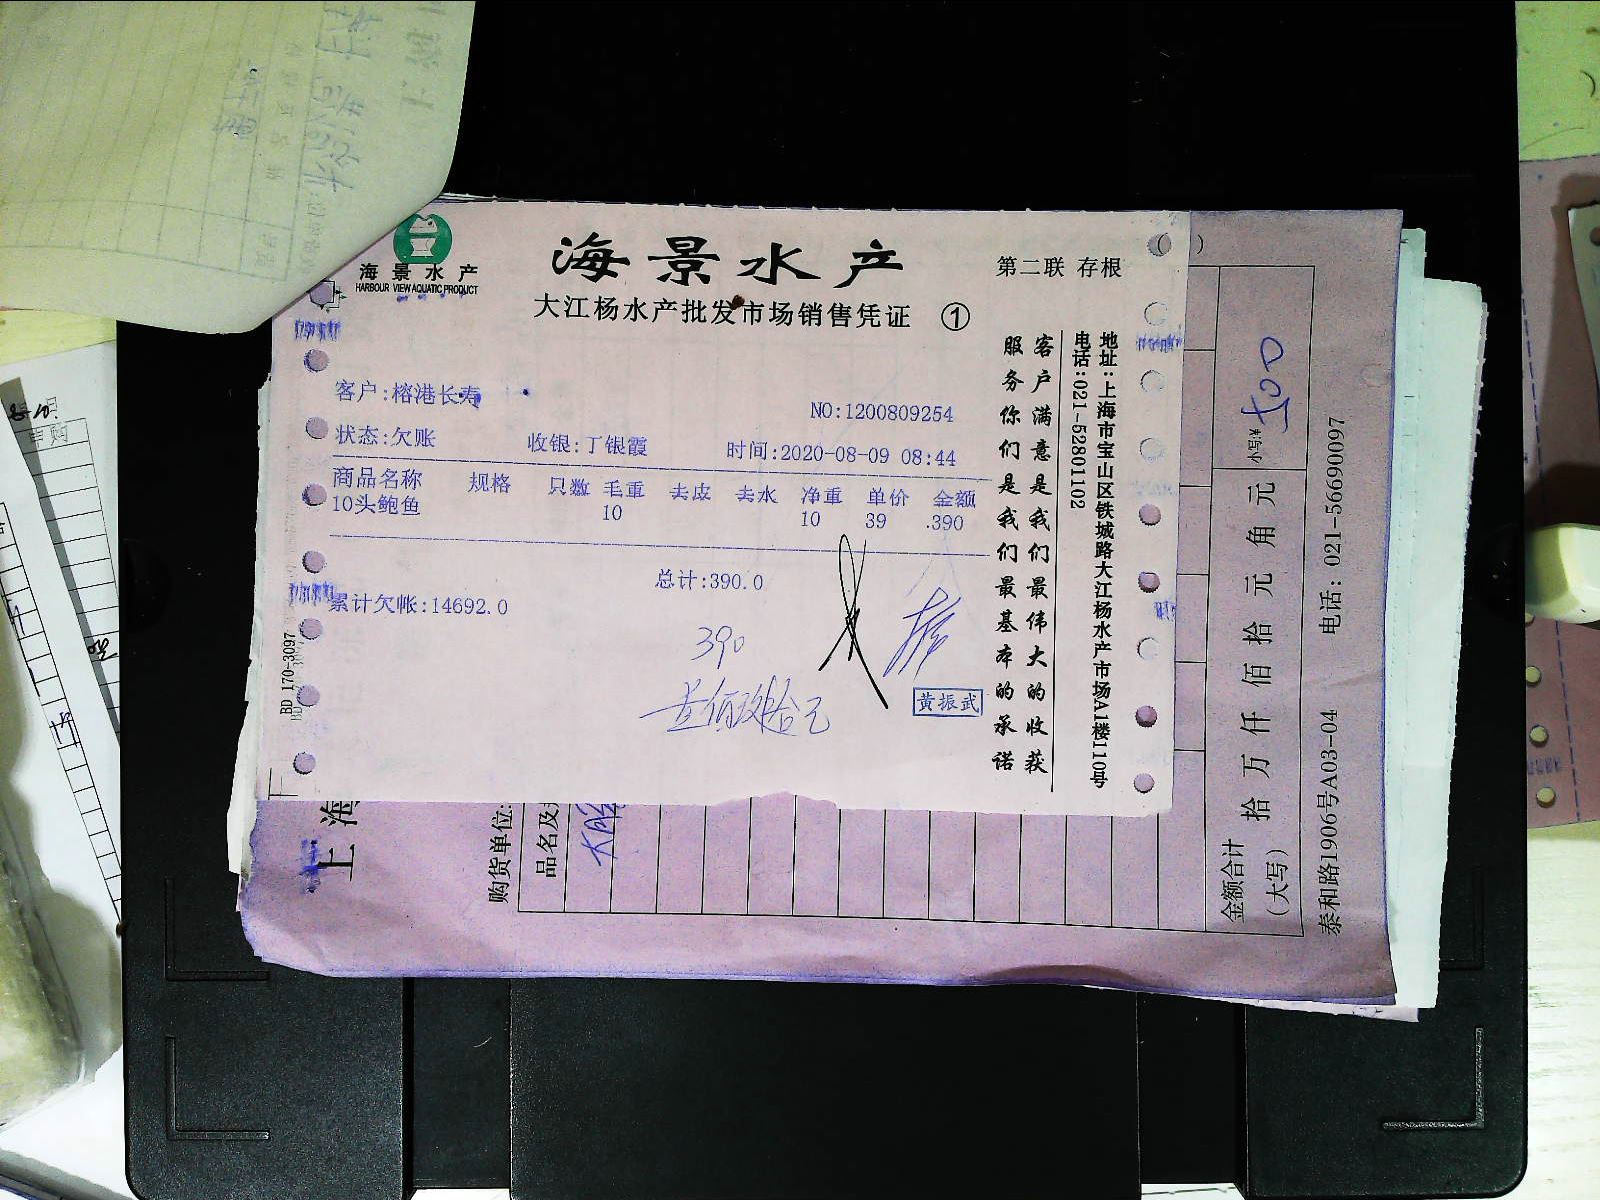 海景水产
HARBOUR VIEW AQUATIC PRODUCT
海景水产
第二联 存根
大江杨水产批发市场销售凭证 ①
客户:榕港长寿
NO:1200809254
状态:欠账 收银:丁银霞 时间:2020-08-09 08:44
商品名称 规格 只数 毛重 去皮 去水 净重 单价 金额
10头鲍鱼 10 10 39 .390
总计:390.0
累计欠帐:14692.0
390
黄振武
BD 170-3097
客户满意是我们最伟大的收获
服务你们是我们最基本的承诺
地址:上海市宝山区铁城路大江杨水产市场A1楼110号
电话:021-52801102
上海
购货单位:
品名及
金额合计
(大写)
拾 万 仟 佰 拾 元 角 元
小写:¥ 500
泰和路1906号A03-04 电话: 021-56690097